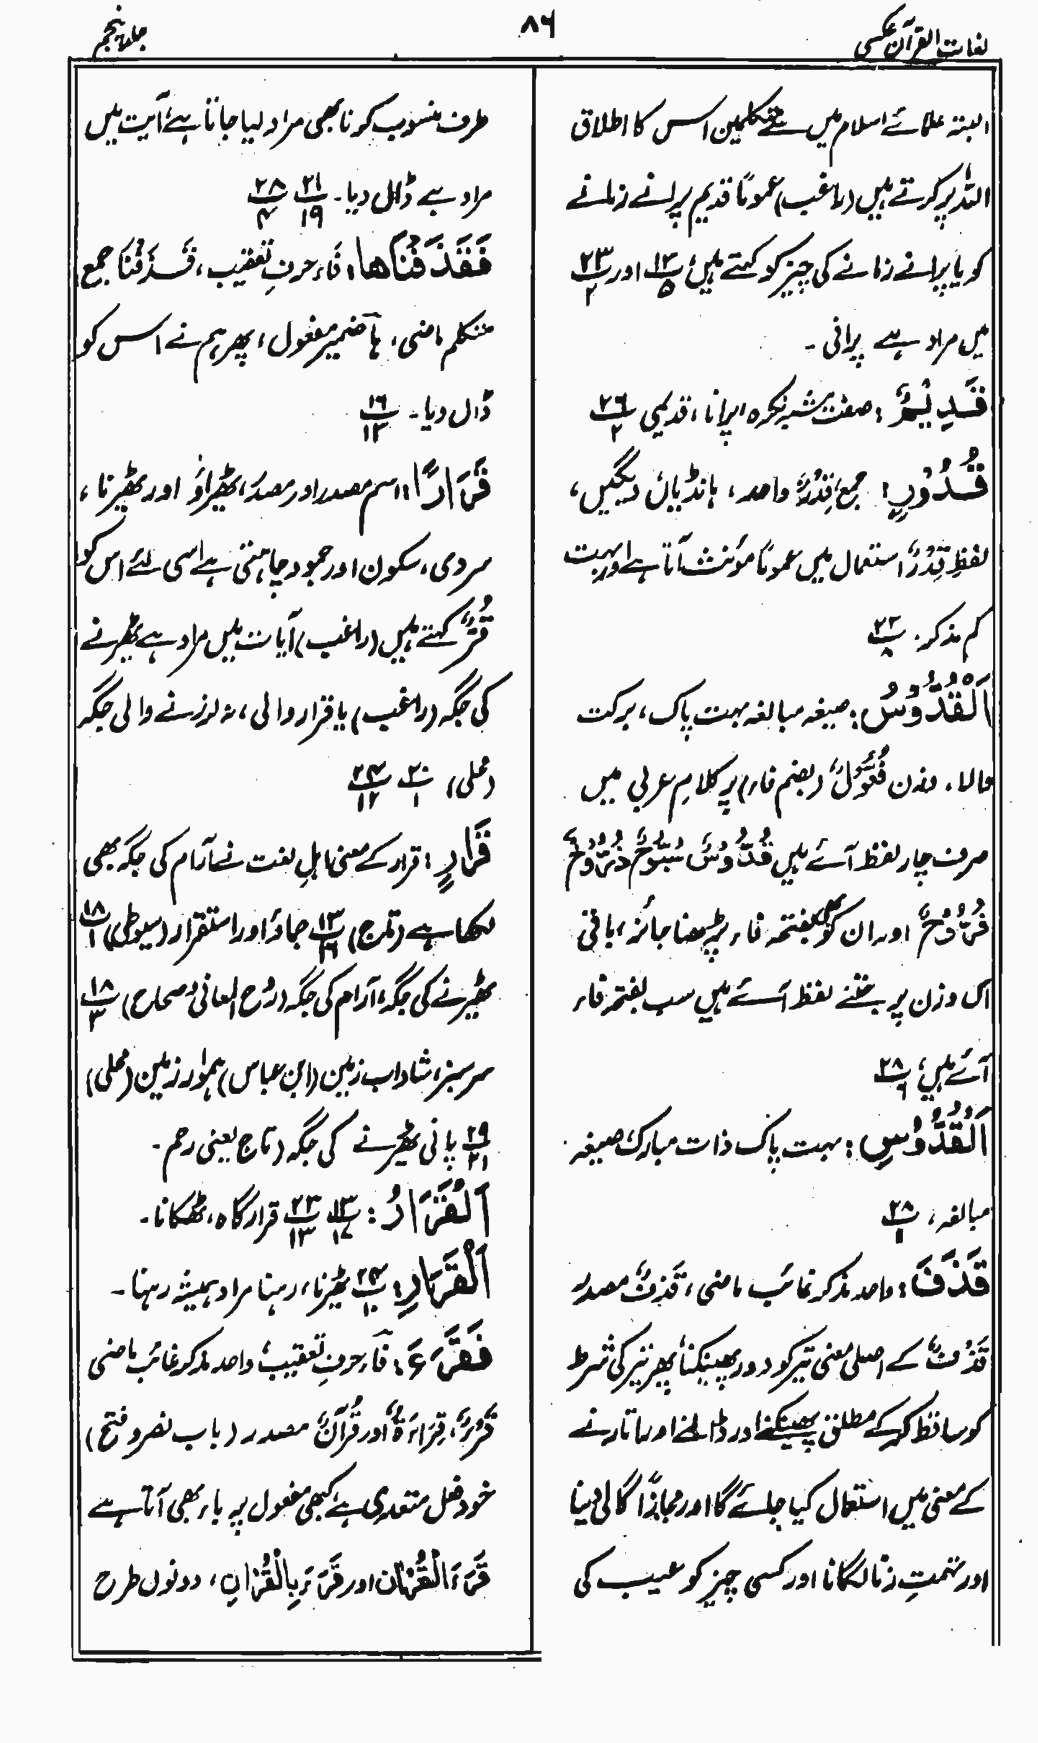 لغات القرآن عکسی
۸۶
جلد پنجم
البتہ علمائے اسلام میں سے متکلمین اس کا اطلاق
اللہ پر کرتے ہیں (راغب) عموماً قدیم پرانے زمانے
کو یا پرانے زمانے کی چیز کو کہتے ہیں، ۱۳/۵ اور ۲۳/۲
میں مراد ہے پرانی ۔
قَدِیْمٌ: صفت مشبہ نکرہ، پرانا، قدیمی ۲۶/۲
قُدُوْرٍ: جمع، قِدْرٌ واحد، ہانڈیاں دیگیں،
لفظِ قِدْرٌ استعمال میں عموماً مؤنث آتا ہے اور بہت
کم مذکر۔ ۲۲/۸
اَلْقُدُّوْسُ: صیغہ مبالغہ بہت پاک، برکت
والا، وزن فُعُّوْلٌ (بضم فاء) پر کلامِ عربی میں
صرف چار لفظ آئے ہیں قُدُّوْسٌ سُبُّوْحٌ ذُرُّوْحٌ
فُرُّوْخٌ اور ان کو بھی بفتحہ فاء پڑھنا جائز، باقی
اس وزن پر جتنے لفظ آئے ہیں سب بفتحہ فاء
آئے ہیں، ۲۸/۶
اَلْقُدُّوْسِ: بہت پاک ذات مبارک، صیغہ
مبالغہ، ۲۸/۱
قَذَفَ: واحد مذکر غائب ماضی، قَذْفٌ مصدر
قَذْفٌ کے اصلی معنی تیر کو دور پھینکنا، پھر تیر کی شرط
کو ساقط کر کے مطلق پھینکنے اور ڈالنے اور اتارنے
کے معنی میں استعمال کیا جائے گا اور مجازاً گالی دینا
اور تہمتِ زنا لگانا اور کسی چیز کو عیب کی
طرف منسوب کرنا بھی مراد لیا جاتا ہے، آیت میں
مراد ہے ڈال دیا۔ ۲۱/۱۹ ۲۸/۴
فَقَذَفْنَاهَا: فَاء حرفِ تعقیب، قَذَفْنَا جمع
متکلم ماضی، ہَا ضمیر مفعول، پھر ہم نے اس کو
ڈال دیا۔ ۱۶/۱۳
قَرَارًا: اسم مصدر اور مصدر، ٹھہراؤ اور ٹھہرنا،
سردی، سکون اور جمود چاہتی ہے اسی لئے اس کو
قُرٌّ کہتے ہیں (راغب) آیات میں مراد ہے ٹھہرنے
کی جگہ (راغب) یا قرار والی، نہ لرزنے والی جگہ
(محلی) ۲۰/۱ ۲۴/۱۲
قَرَارٍ: قرار کے معنی اہلِ لغت نے آرام کی جگہ بھی
لکھا ہے (تاج) ۱۳/۱۶ جماؤ اور استقرار (سیوطی) ۱۸/۱
ٹھہرنے کی جگہ، آرام کی جگہ (روح المعانی و صحاح) ۱۸/۳
سرسبز، شاداب زمین (ابن عباس) ہموار زمین (محلی)
۲۹/۲۱ پانی ٹھہرنے کی جگہ (تاج یعنی رحم ۔
اَلْقَرَارُ: ۱۳/۱۷ ۲۳/۱۳ قرارگاہ، ٹھکانا۔
اَلْقَرَارِ: ۲۴/۱۰ ٹھہرنا، رہنا مراد ہمیشہ رہنا۔
فَقَرَءَ: فَآ حرفِ تعقیب، واحد مذکر غائب ماضی
قَرْءٌ، قِرَاءَةٌ اور قُرْآنٌ مصدر (باب نصر و فتح)
خود فعل متعدی ہے، کبھی مفعول پر باء بھی آتا ہے
قَرَءَ الْقُرْاٰنَ اور قَرَءَ بِالْقُرْاٰنِ، دونوں طرح